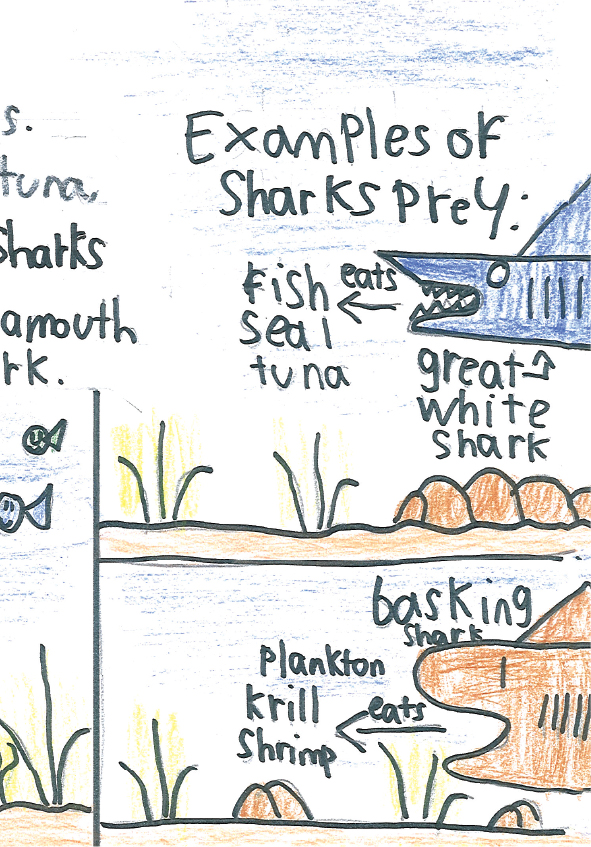 s.
tuna,
sharks
amouth
rk.
Examples of
Sharks prey:
eats
fish
seal
tuna
great
white
shark
basking
shark
plankton
krill
shrimp
eats